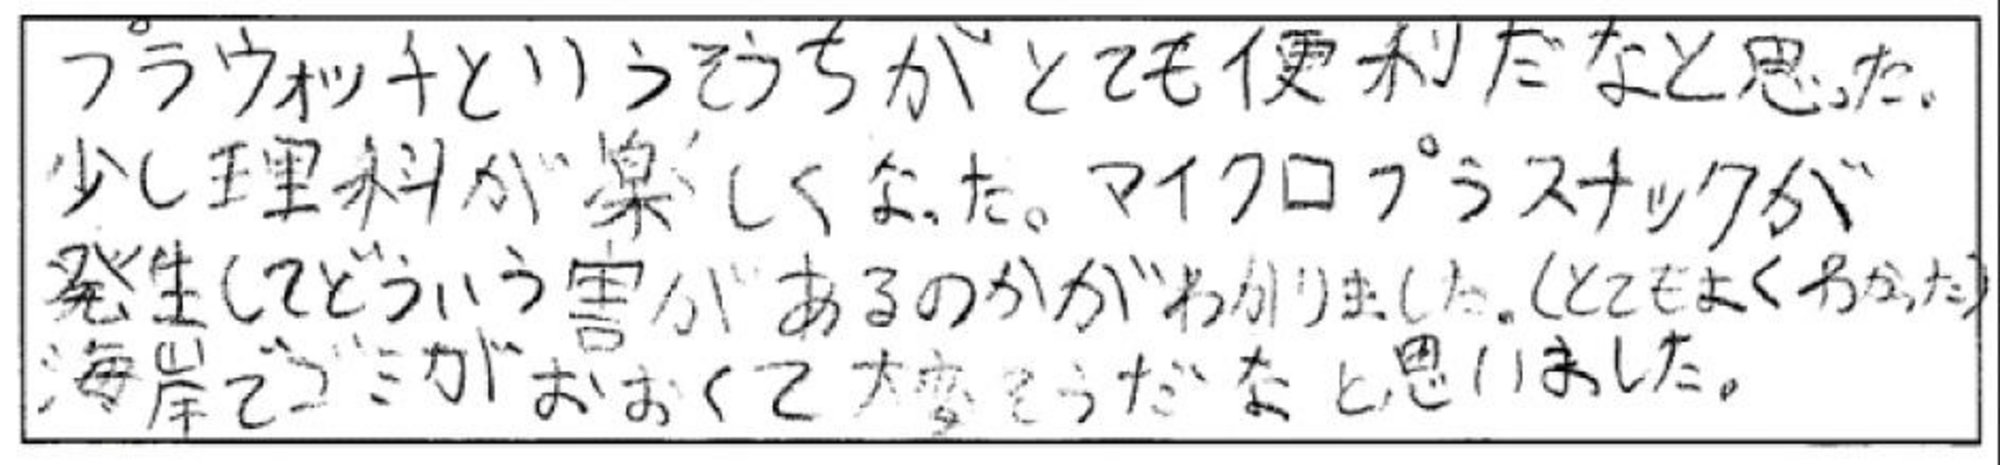 プラウォッチというそうちがとても便利だなと思った。
少し理科が楽しくなった。マイクロプラスチックが
発生してどういう害があるのかがわかりました。(とてもよくわかった)
海岸でゴミがおおくて大変そうだなと思いました。